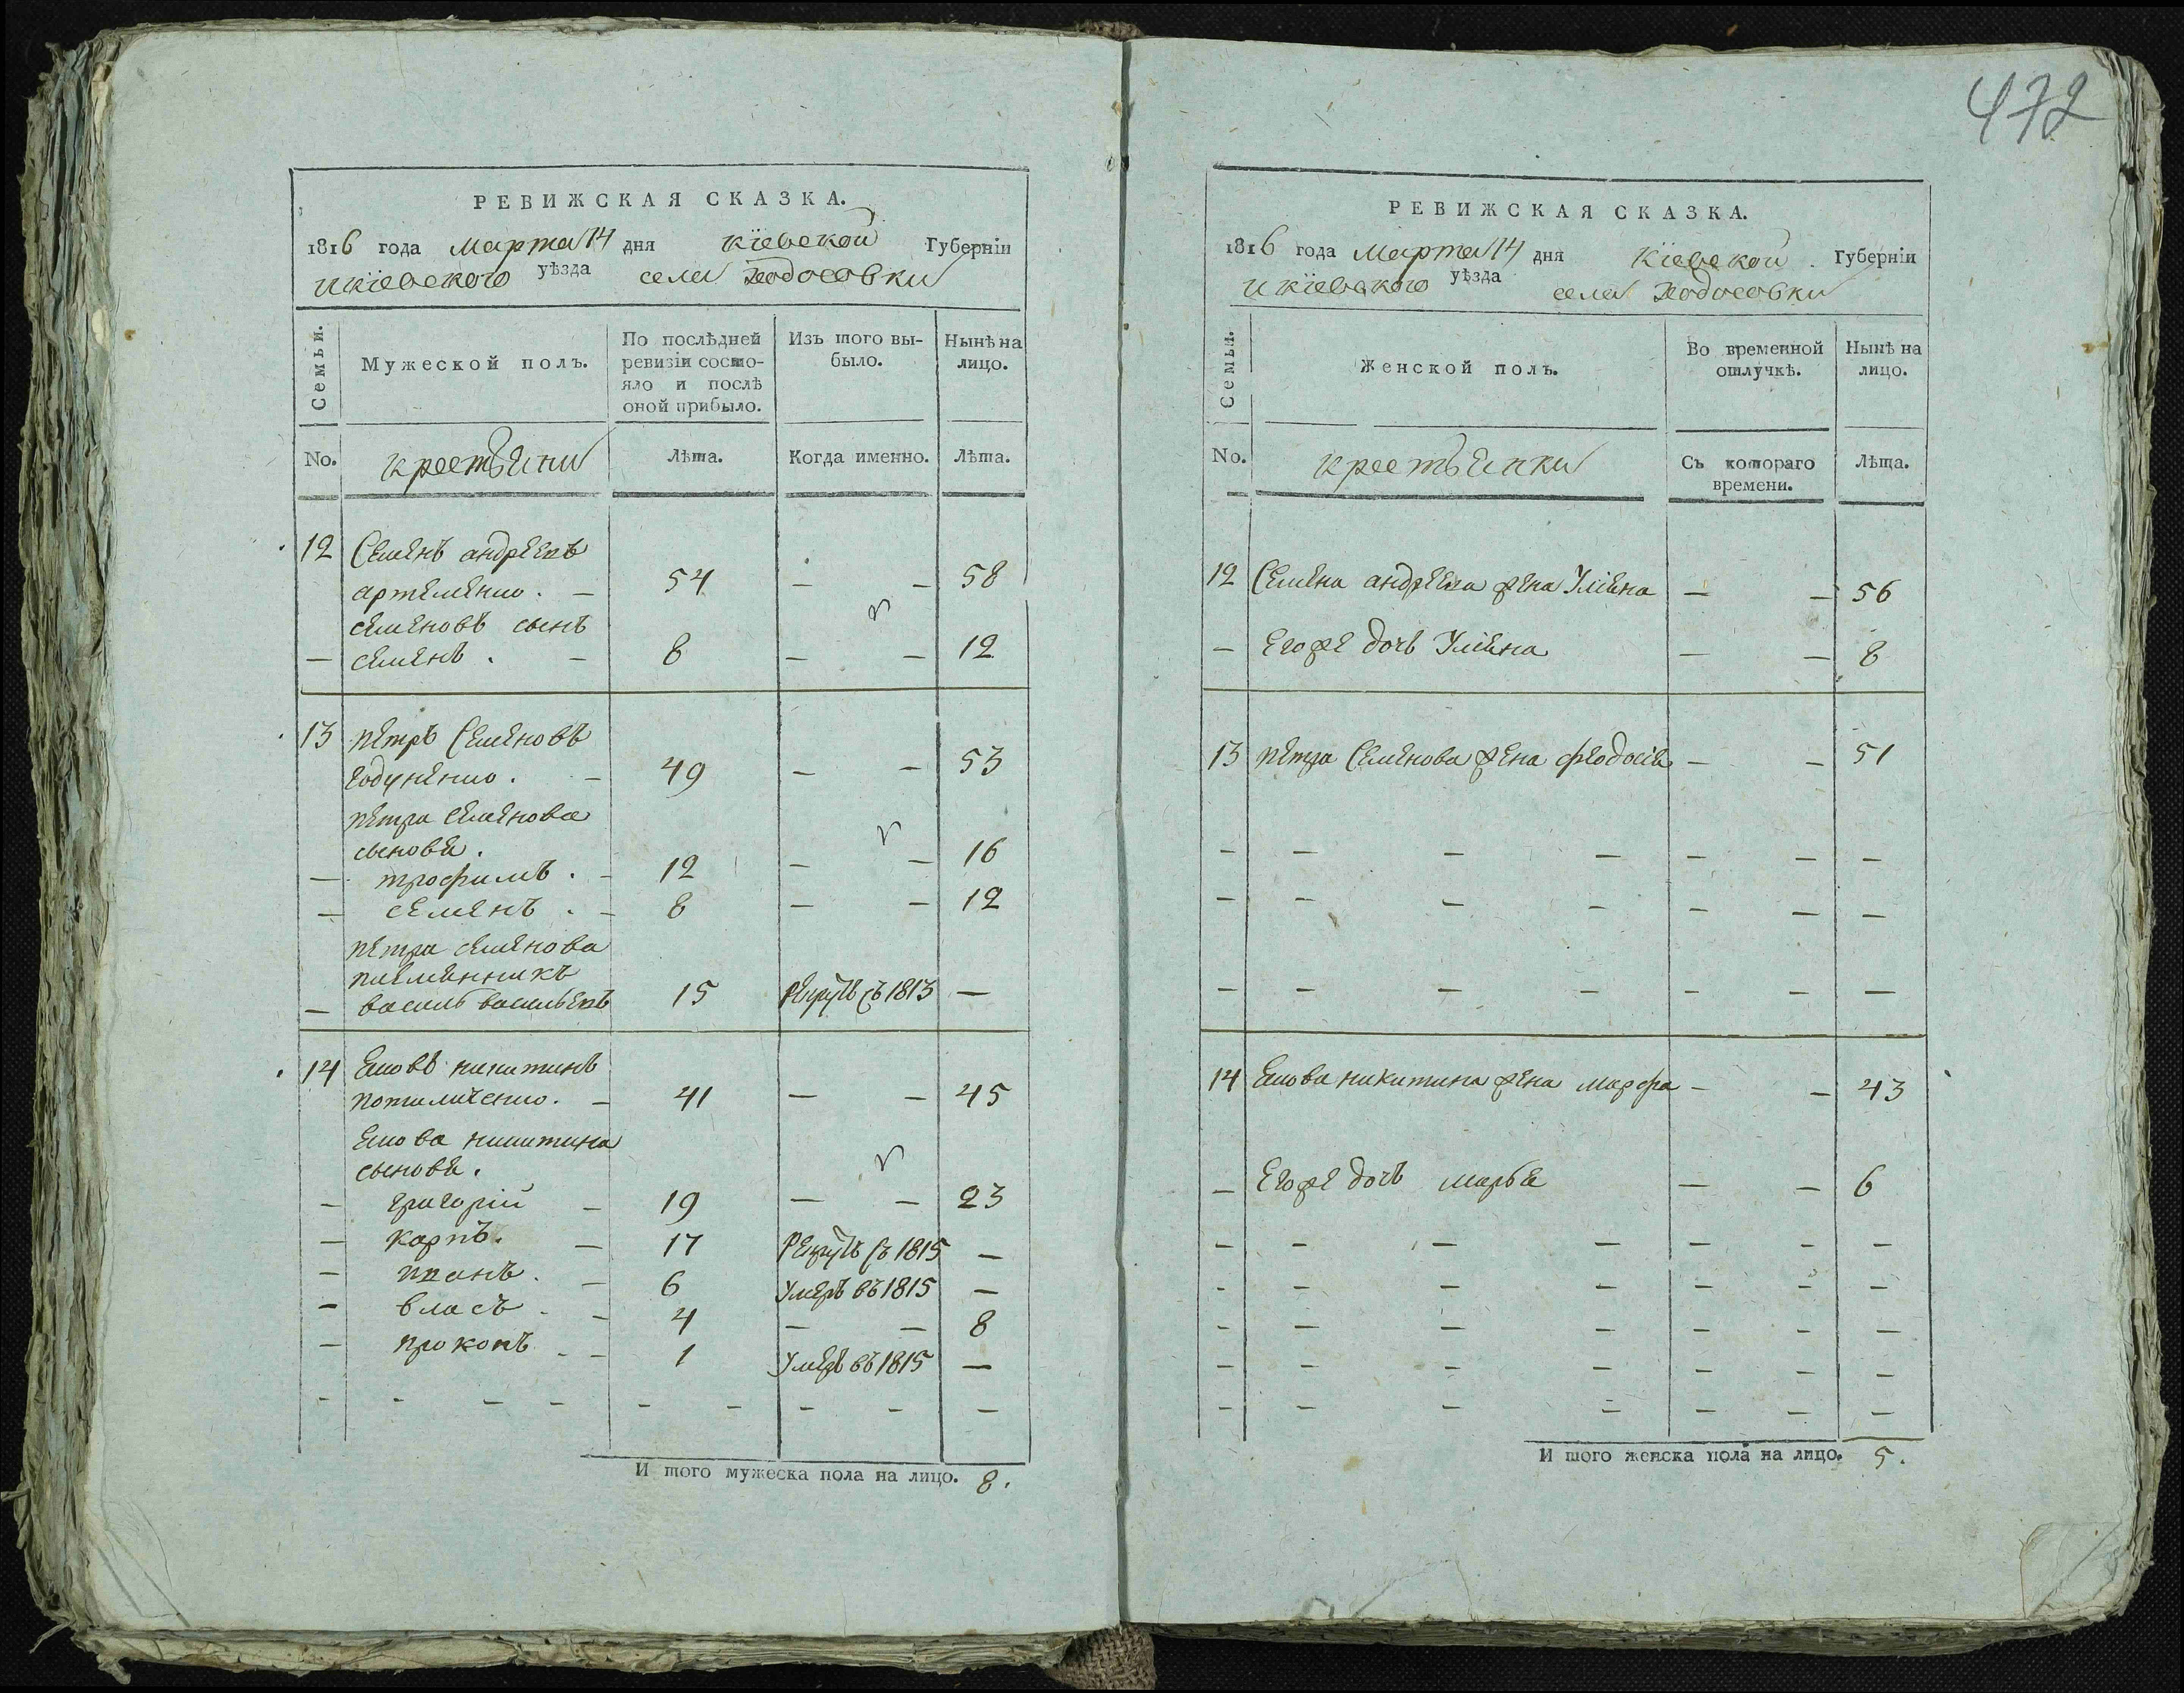 472
РЕВИЖСКАЯ СКАЗКА.
1816 года марта 14 дня кіевской Губерніи
и кіевского уѣзда села Ходосовки
Семьи.
Мужеской полъ.
По послѣдней
ревизіи состо-
яло и послѣ
оной прибыло.
Изъ того вы-
было.
Нынѣ на
лицо.
No.
Лѣта.
Когда именно.
Лѣта.
12 Семенъ андреевъ
артеменко. — 54 — — 58
семеновъ сынъ
— семенъ. — 8 — — 12
13 петръ Семеновъ
— 49 — — 53
петра семенова
сыновя.
— трофимъ. — 12 — — 16
— семенъ. — 8 — — 12
петра семенова
племянникъ
— василь васильевъ 15 съ 1813 —
14 никитинъ
— 41 — — 45
никитина
сыновя.
— григорій — 19 — — 23
— карпъ. — 17 съ 1815 —
— иванъ. — 6 умеръ въ 1815 —
— власъ. — 4 — — 8
— прокопъ. — 1 умеръ въ 1815 —
— — — — — — — — —
И того мужеска пола на лицо. 8.
РЕВИЖСКАЯ СКАЗКА.
1816 года марта 14 дня Кіевской. Губерніи
и кіевского уѣзда села Ходосовки
Семьи.
Женской полъ.
Во временной
отлучкѣ.
Нынѣ на
лицо.
No.
Съ котораго
времени.
Лѣта.
12 Семена андреева жена Уліяна — — 56
— Егоже дочь Уліяна — — 8
13 петра Семенова жена феодосія — — 51
— — — — — — —
— — — — — — —
— — — — — — —
14 никитина жена марфа — — 43
— Егоже дочь марья — — 6
— — — — — — —
— — — — — — —
— — — — — — —
— — — — — — —
— — — — — — —
И того женска пола на лицо. 5.